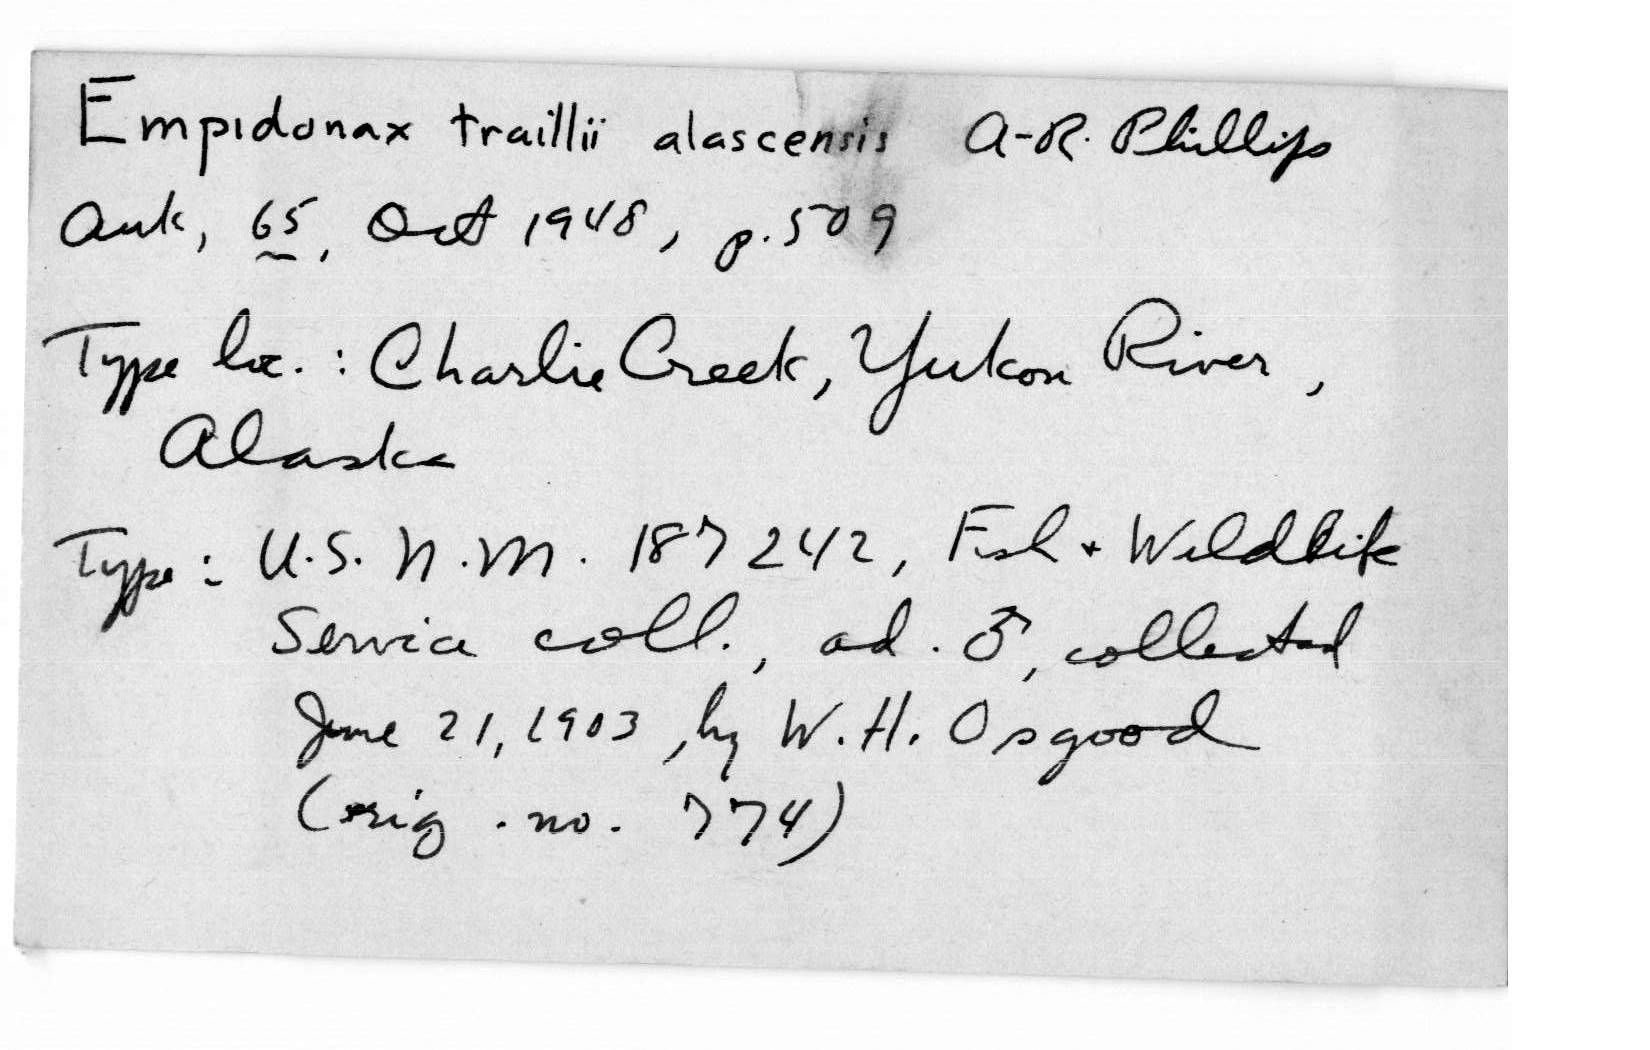 Empidonax traillii alascensis A.R. Phillips
Auk, 65, Oct 1948, p. 509
Type loc. : Charlie Creek, Yukon River,
Alaska
Type : U.S.N.M. 187242, Fish + Wildlife
Service coll., ad. ♂, collected
June 21, 1903, by W.H. Osgood
(orig. no. 774)